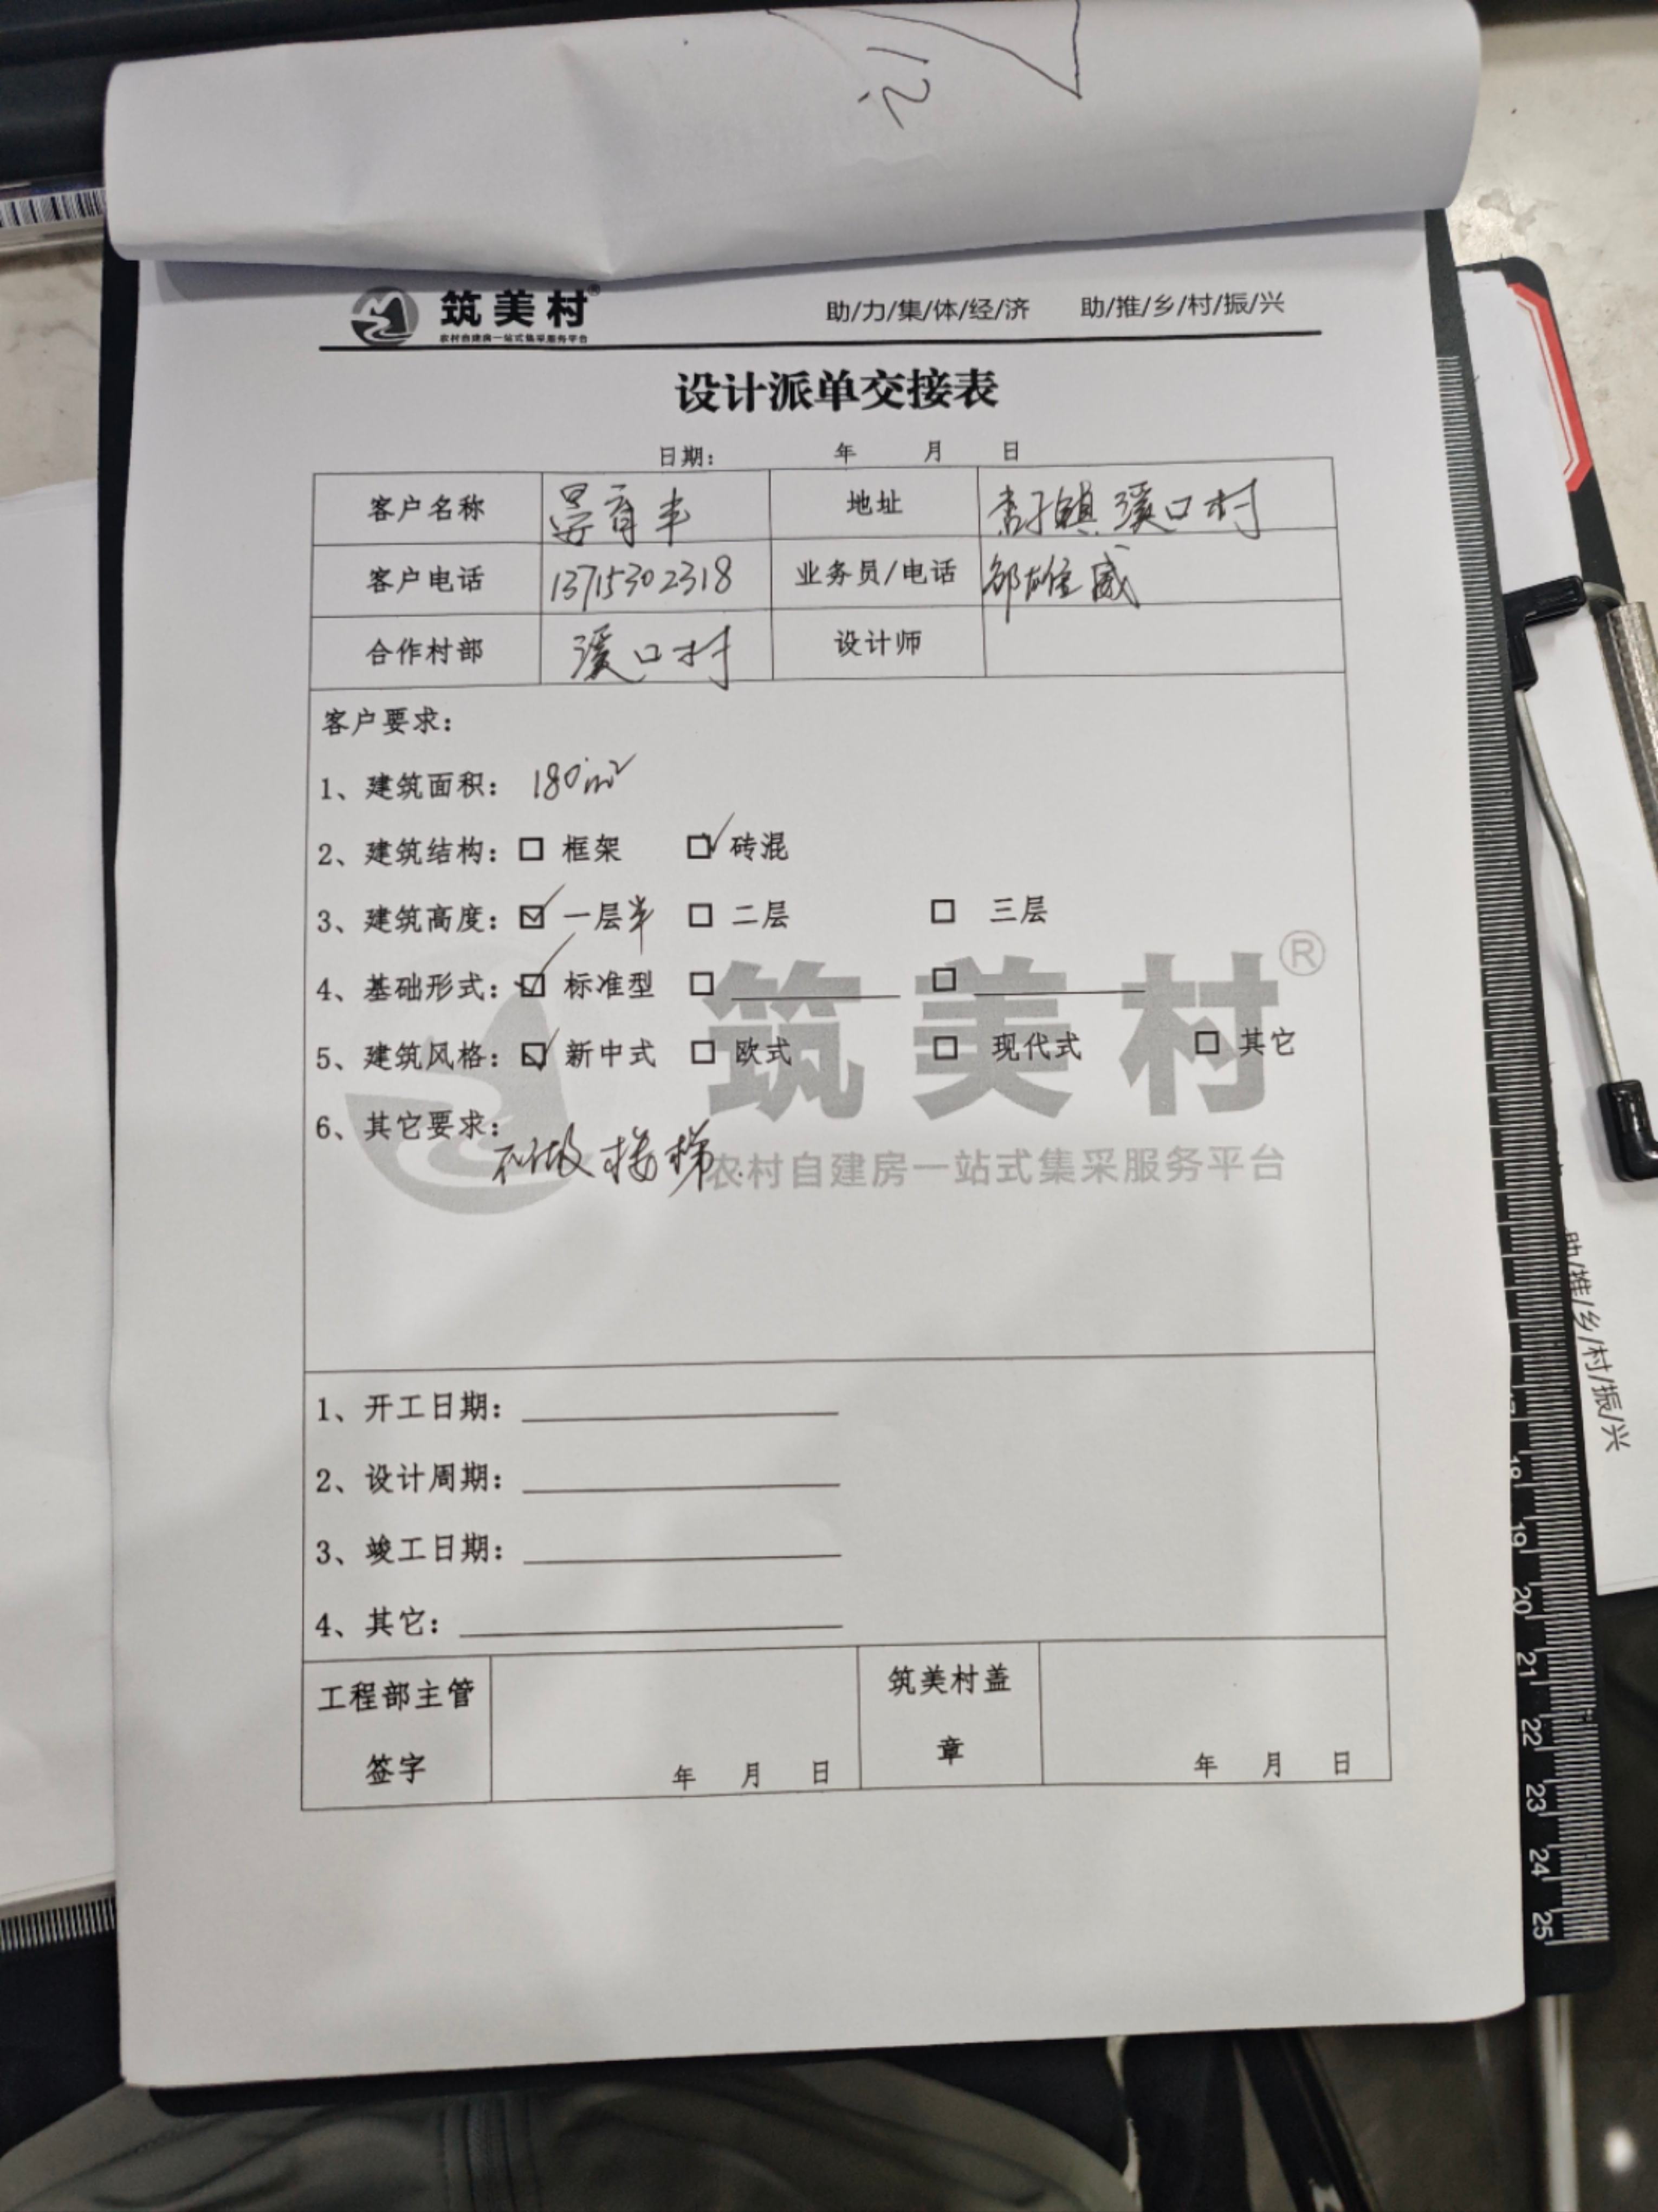 筑美村®
农村自建房一站式集采服务平台
助/力/集/体/经/济 助/推/乡/村/振/兴
设计派单交接表
日期: 年 月 日
客户名称 晏育丰 地址 镇溪口村
客户电话 13715302318 业务员/电话 邹雄威
合作村部 溪口村 设计师
客户要求:
1、建筑面积: 180m²
2、建筑结构: □ 框架 ☑ 砖混
3、建筑高度: ☑ 一层半 □ 二层 □ 三层
4、基础形式: ☑ 标准型 □ ______ □ ______
5、建筑风格: ☑ 新中式 □ 欧式 □ 现代式 □ 其它
6、其它要求:
不做楼梯.
筑美村®
农村自建房一站式集采服务平台
1、开工日期: ______
2、设计周期: ______
3、竣工日期: ______
4、其它: ______
工程部主管签字 年 月 日
筑美村盖章 年 月 日
助/推/乡/村/振/兴
18
19
20
21
22
23
24
25